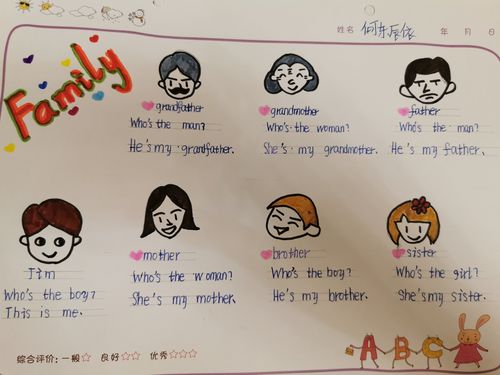 姓名 何东辰依 年 月 日
Family
grandfather
Who's the man?
He's my grandfather.
grandmother
Who's the woman?
She's my grandmother.
father
Who's the man?
He's my father.
Jim
Who's the boy?
This is me.
mother
Who's the woman?
She's my mother.
brother
Who's the boy?
He's my brother.
sister
Who's the girl?
She's my sister.
综合评价: 一般☆ 良好☆☆ 优秀☆☆☆
ABC